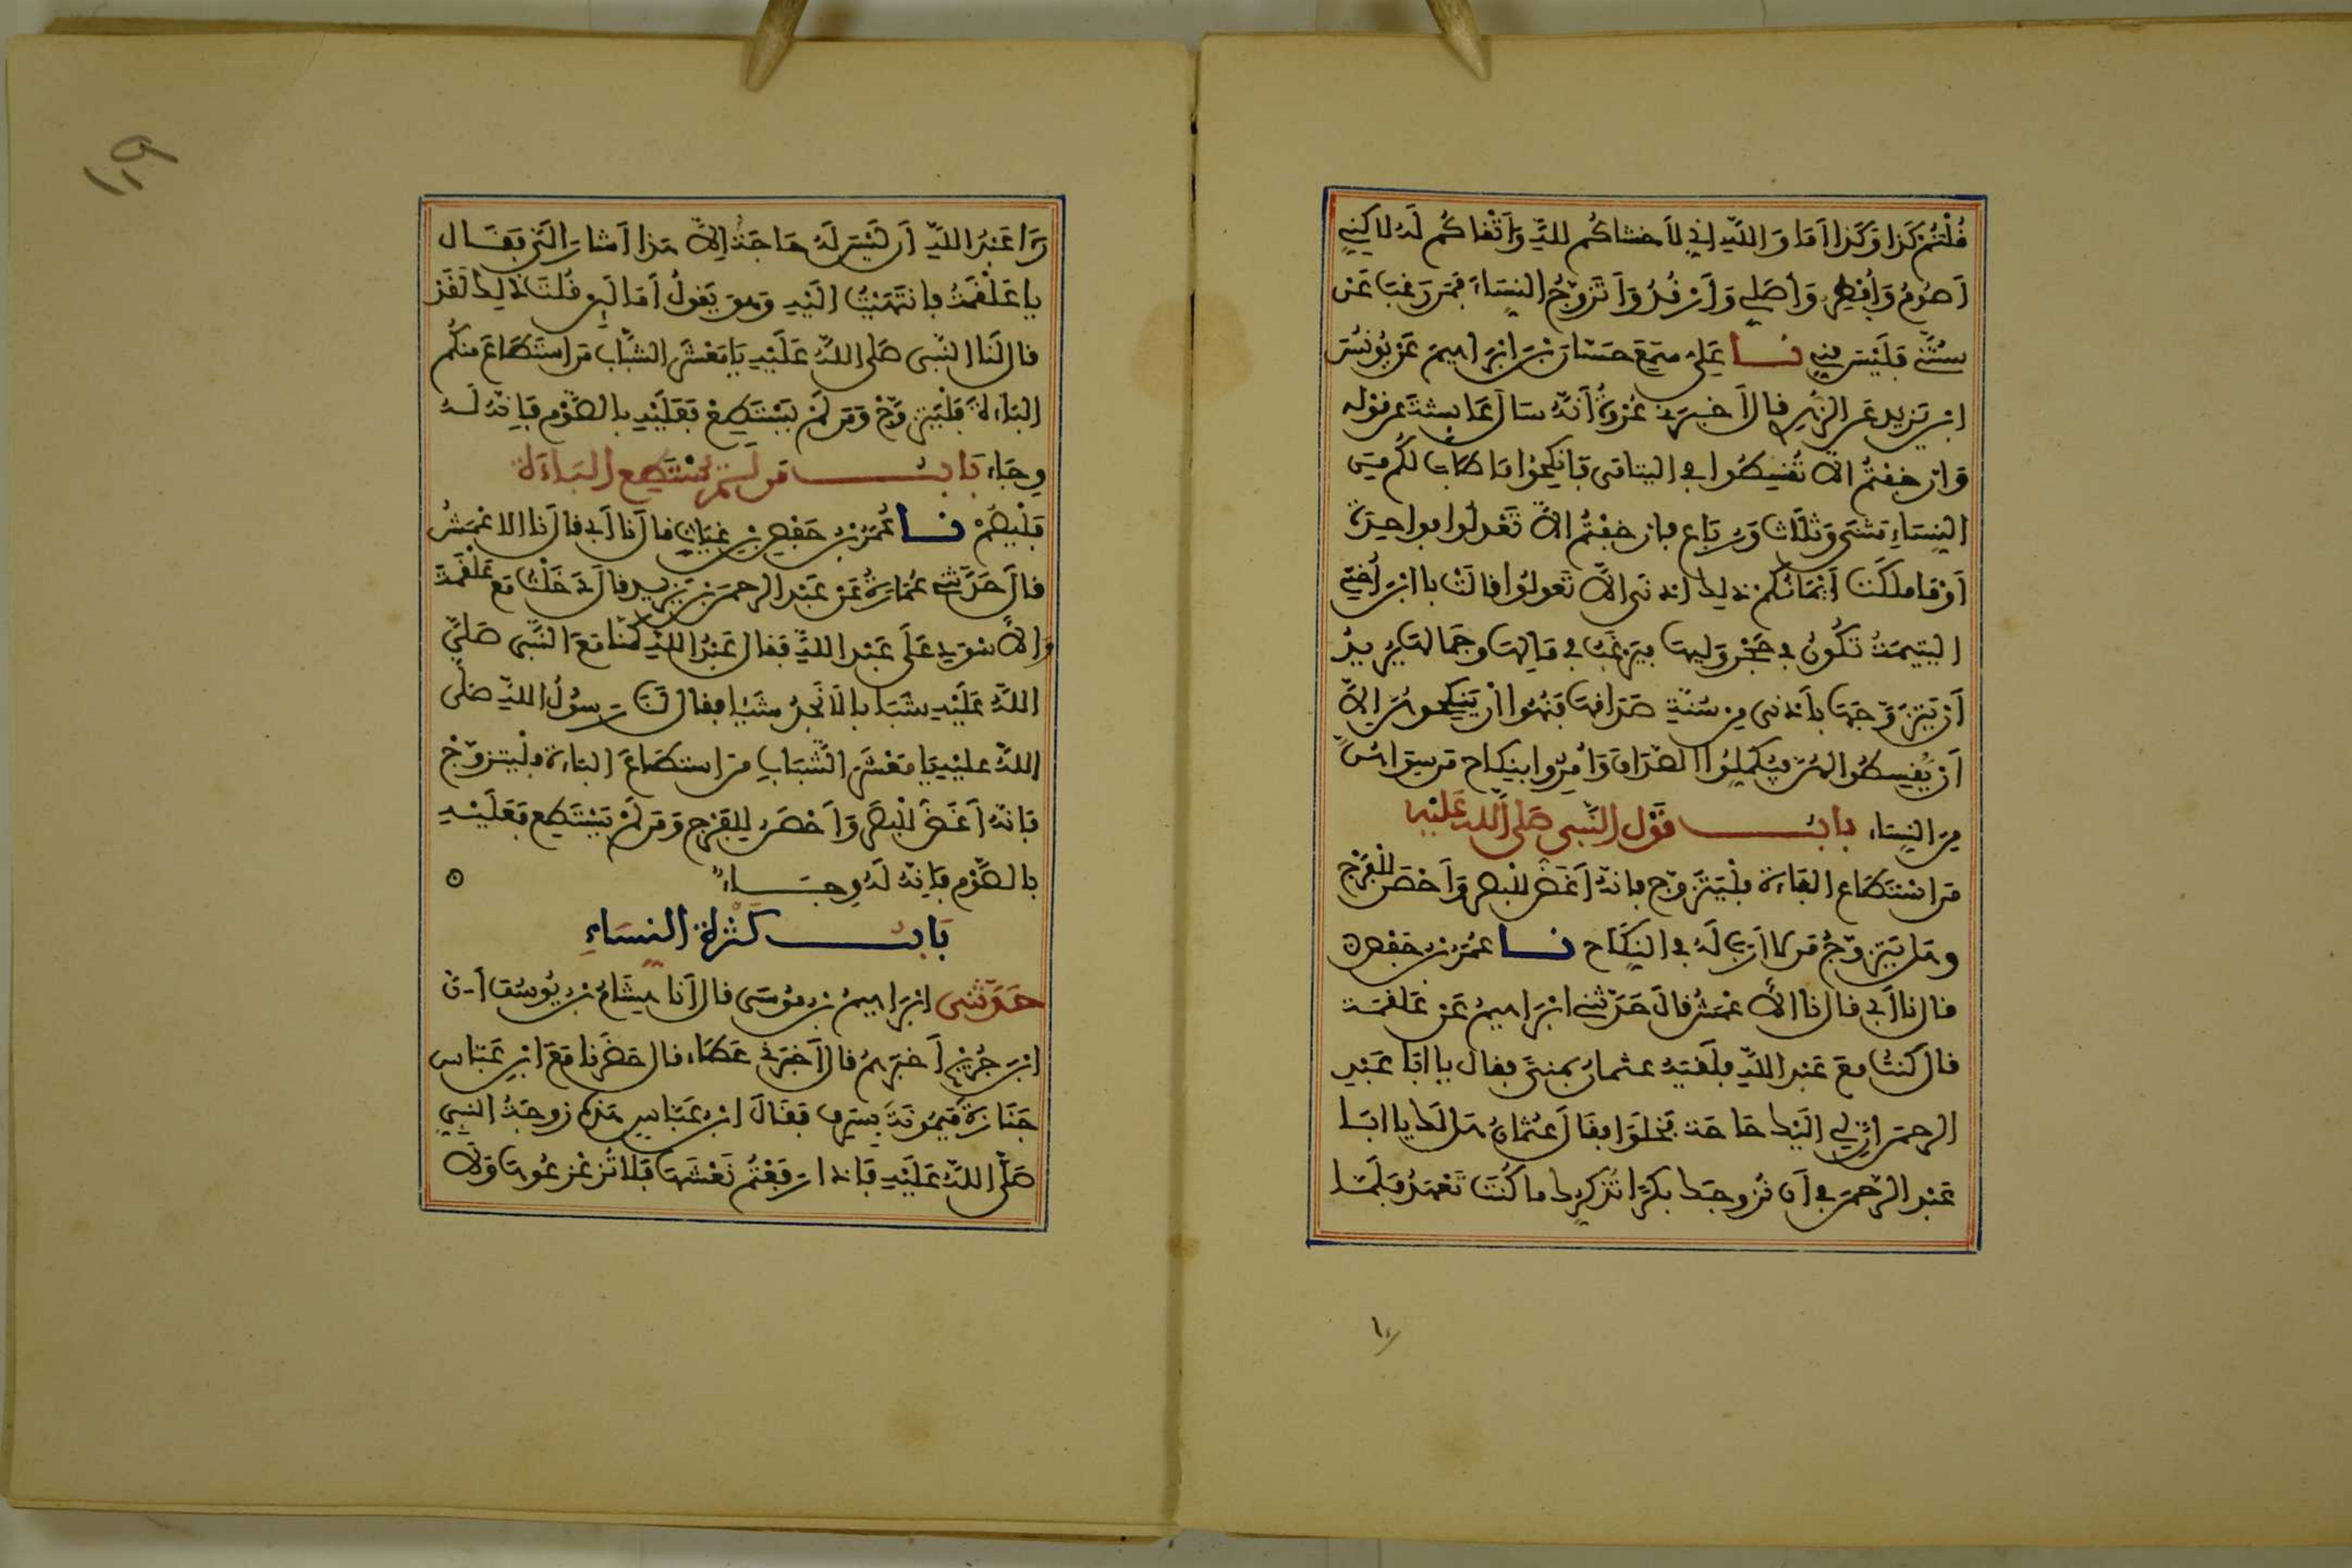 قُلْتُمْ كَذَا وَكَذَا أَمَا وَاللَّهِ إِنِّي لَأَخْشَاكُمْ لِلَّهِ وَأَتْقَاكُمْ لَهُ لَاكِنِّي
أَصُومُ وَأُفْطِرُ وَأُصَلِّي وَأَرْقُدُ وَأَتَزَوَّجُ النِّسَاءَ فَمَن رَغِبَ عَنْ
سُنَّتِي فَلَيْسَ مِنِّي نا عَلِيٌّ سَمِعَ حَسَّانَ بْنَ إِبْرَاهِيمَ عَنْ يُونُسَ
ابْنِ يَزِيدَ عَنِ الزُّهْرِي قَالَ أَخْبَرَنِي عُرْوَةُ أَنَّهُ سَأَلَ عَائِشَةَ عَن قَوْلِهِ
وَإِنْ خِفْتُمْ أَلَّا تُقْسِطُوا فِي الْيَتَامَى فَانكِحُوا مَا طَابَ لَكُم مِّنَ
النِّسَاءِ مَثْنَى وَثُلَاثَ وَرُبَاعَ فَإِنْ خِفْتُمْ أَلَّا تَعْدِلُوا فَوَاحِدَةً
أَوْ مَا مَلَكَتْ أَيْمَانُكُمْ ذَلِكَ أَدْنَى أَلَّا تَعُولُوا قَالَتْ يَا ابْنَ أُخْتِي
الْيَتِيمَةُ تَكُونُ فِي حَجْرِ وَلِيِّهَا فَيَرْغَبُ فِي مَالِهَا وَجَمَالِهَا يُرِيدُ
أَنْ يَتَزَوَّجَهَا بِأَدْنَى مِن سُنَّةِ صَدَاقِهَا فَنُهُوا أَنْ يَنكِحُوهُنَّ إِلَّا
أَنْ يُقْسِطُوا لَهُنَّ فَيُكْمِلُوا الصَّدَاقَ وَأُمِرُوا بِنِكَاحِ مَن سِوَاهُنَّ
مِنَ النِّسَاءِ بَابُ قَوْلِ النَّبِيِّ صَلَّى اللَّهُ عَلَيْهِ
مَنِ اسْتَطَاعَ الْبَاءَةَ فَلْيَتَزَوَّجْ فَإِنَّهُ أَغَضُّ لِلْبَصَرِ وَأَحْصَنُ لِلْفَرْجِ
وَهَل يَتَزَوَّجُ مَن لَا أَرَبَ لَهُ فِي النِّكَاحِ نا عُمَرُ بْنُ حَفْصٍ
قَالَ نَا أَبِي قَالَ نَا الْأَعْمَشُ قَالَ حَدَّثَنِي إِبْرَاهِيمُ عَنْ عَلْقَمَةَ
قَالَ كُنْتُ مَعَ عَبْدِ اللَّهِ فَلَقِيَهُ عُثْمَانُ بِمِنًى فَقَالَ يَا أَبَا عَبْدِ
الرَّحْمَنِ إِنَّ لِي إِلَيْكَ حَاجَةً فَخَلَوَا فَقَالَ عُثْمَانُ هَل لَّكَ يَا أَبَا
عَبْدِ الرَّحْمَنِ فِي أَنْ نُزَوِّجَكَ بِكْرًا تُذَكِّرُكَ مَا كُنْتَ تَعْهَدُ فَلَمَّا
رَءَا عَبْدُ اللَّهِ أَن لَّيْسَ لَهُ حَاجَةٌ إِلَّا هَذَا أَشَارَ إِلَيَّ فَقَالَ
يَا عَلْقَمَةُ فَانْتَهَيْتُ إِلَيْهِ وَهُوَ يَقُولُ أَمَا لَئِن قُلْتَ ذَلِكَ لَقَدْ
قَالَ لَنَا النَّبِيُّ صَلَّى اللَّهُ عَلَيْهِ يَا مَعْشَرَ الشَّبَابِ مَنِ اسْتَطَاعَ مِنكُمُ
الْبَاءَةَ فَلْيَتَزَوَّجْ وَمَن لَمْ يَسْتَطِعْ فَعَلَيْهِ بِالصَّوْمِ فَإِنَّهُ لَهُ
وِجَاءٌ بَابُ مَن لَمْ يَسْتَطِعِ الْبَاءَةَ
فَلْيَصُمْ نا عُمَرُ بْنُ حَفْصِ بْنِ غِيَاثٍ قَالَ نَا أَبِي قَالَ نَا الْأَعْمَشُ
قَالَ حَدَّثَنِي عُمَارَةُ عَنْ عَبْدِ الرَّحْمَنِ بْنِ يَزِيدَ قَالَ دَخَلْتُ مَعَ عَلْقَمَةَ
وَالْأَسْوَدِ عَلَى عَبْدِ اللَّهِ فَقَالَ عَبْدُ اللَّهِ كُنَّا مَعَ النَّبِيِّ صَلَّى
اللَّهُ عَلَيْهِ شَبَابًا لَا نَجِدُ شَيْئًا فَقَالَ لَنَا رَسُولُ اللَّهِ صَلَّى
اللَّهُ عَلَيْهِ يَا مَعْشَرَ الشَّبَابِ مَنِ اسْتَطَاعَ الْبَاءَةَ فَلْيَتَزَوَّجْ
فَإِنَّهُ أَغَضُّ لِلْبَصَرِ وَأَحْصَنُ لِلْفَرْجِ وَمَن لَمْ يَسْتَطِعْ فَعَلَيْهِ
بِالصَّوْمِ فَإِنَّهُ لَهُ وِجَاءٌ
بَابُ كَثْرَةِ النِّسَاءِ
حَدَّثَنِي إِبْرَاهِيمُ بْنُ مُوسَى قَالَ أَنَا هِشَامُ بْنُ يُوسُفَ أَنَّ
ابْنَ جُرَيْجٍ أَخْبَرَهُمْ قَالَ أَخْبَرَنِي عَطَاءٌ قَالَ حَضَرْنَا مَعَ ابْنِ عَبَّاسٍ
جَنَازَةَ مَيْمُونَةَ بِسَرِفَ فَقَالَ ابْنُ عَبَّاسٍ هَذِهِ زَوْجَةُ النَّبِيِّ
صَلَّى اللَّهُ عَلَيْهِ فَإِذَا رَفَعْتُمْ نَعْشَهَا فَلَا تُزَعْزِعُوهَا وَلَا